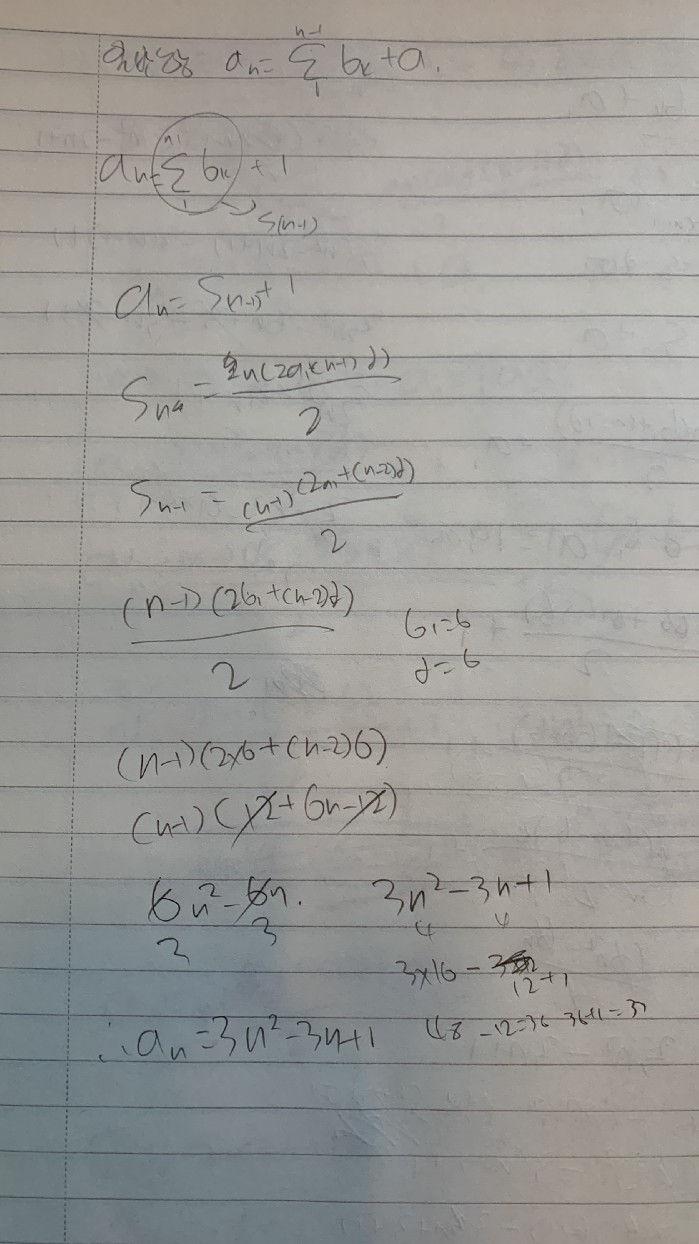 aₙ = Σ₁ⁿ⁻¹ bₖ + a₁
aₙ = Σ₁ⁿ⁻¹ bₖ + 1
S(n-1)
aₙ = Sₙ₋₁ + 1
Sₙ = n(2a₁+(n-1)d) / 2
Sₙ₋₁ = (n-1)(2a₁+(n-2)d) / 2
(n-1)(2b₁+(n-2)d) / 2 b₁=6
d=6
(n-1)(2×6+(n-2)6)
(n-1)(12+6n-12)
6n²-6n. 3n²-3n+1
3 3 4 4
3×16 - 12+1
∴ aₙ = 3n²-3n+1 48-12=36 36+1=37